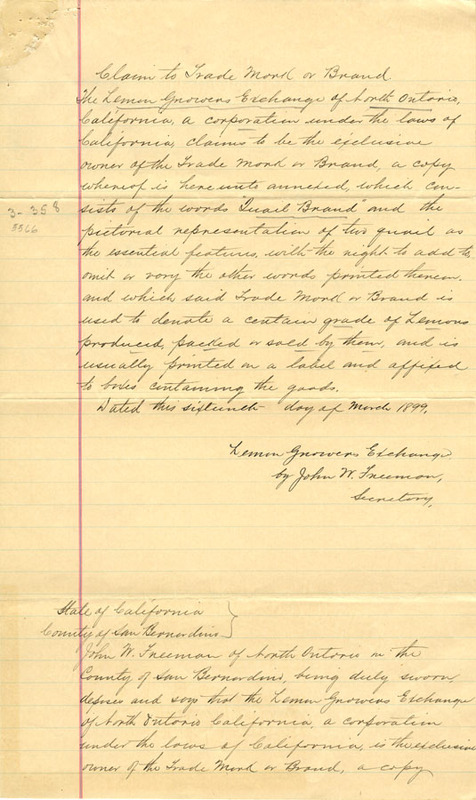 Claim to Trade Mark or Brand
The Lemon Growers Exchange of North Ontario,
California, a corporation under the laws of
California, claims to be the exclusive
owner of the Trade Mark or Brand, a copy
whereof is hereunto annexed, which con-
sists of the words "Quail Brand" and the
3-358
5566
pictorial representation of two quail as
the essential features, with the right to add to
omit or vary the other words printed thereon.
and which said Trade Mark or Brand is
used to denote a certain grade of Lemons
produced, packed or sold by them, and is
usually printed on a label and affixed
to boxes containing the goods.
Dated this sixteenth day of March 1899.
Lemon Growers Exchange.
by John W. Freeman,
Secretary,
State of California }
County of San Bernardino }
John W. Freeman of North Ontario in the
County of San Bernardino, being duly sworn
deposes and says that the Lemon Growers Exchange
of North Ontario California, a corporation
under the laws of California, is the exclusive
owner of the Trade Mark or Brand, a copy